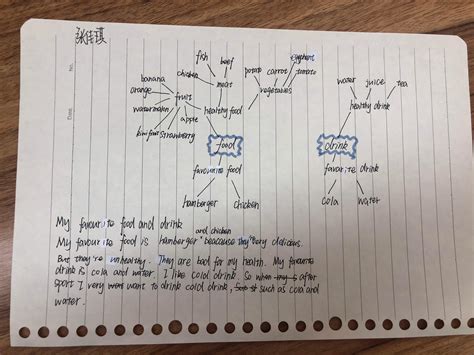 张佳琪
No.
Date
fish
beef
chicken
meat
banana
orange
fruit
watermelon
apple
kiwi fruit
strawberry
healthy food
potato
carrot
eggplant
tomato
vegetables
food
favourite food
hamberger
chicken
water
juice
tea
healthy drink
drink
favourite drink
cola
water
My favourite food and drink
and chicken
My favourite food is hamberger beacause they very delicious.
But they're unhealthy. They are bad for my health. My favourite
drink is cola and water. I like cold drink. So after
sport I very want to drink cold drink, such as cola and
water.